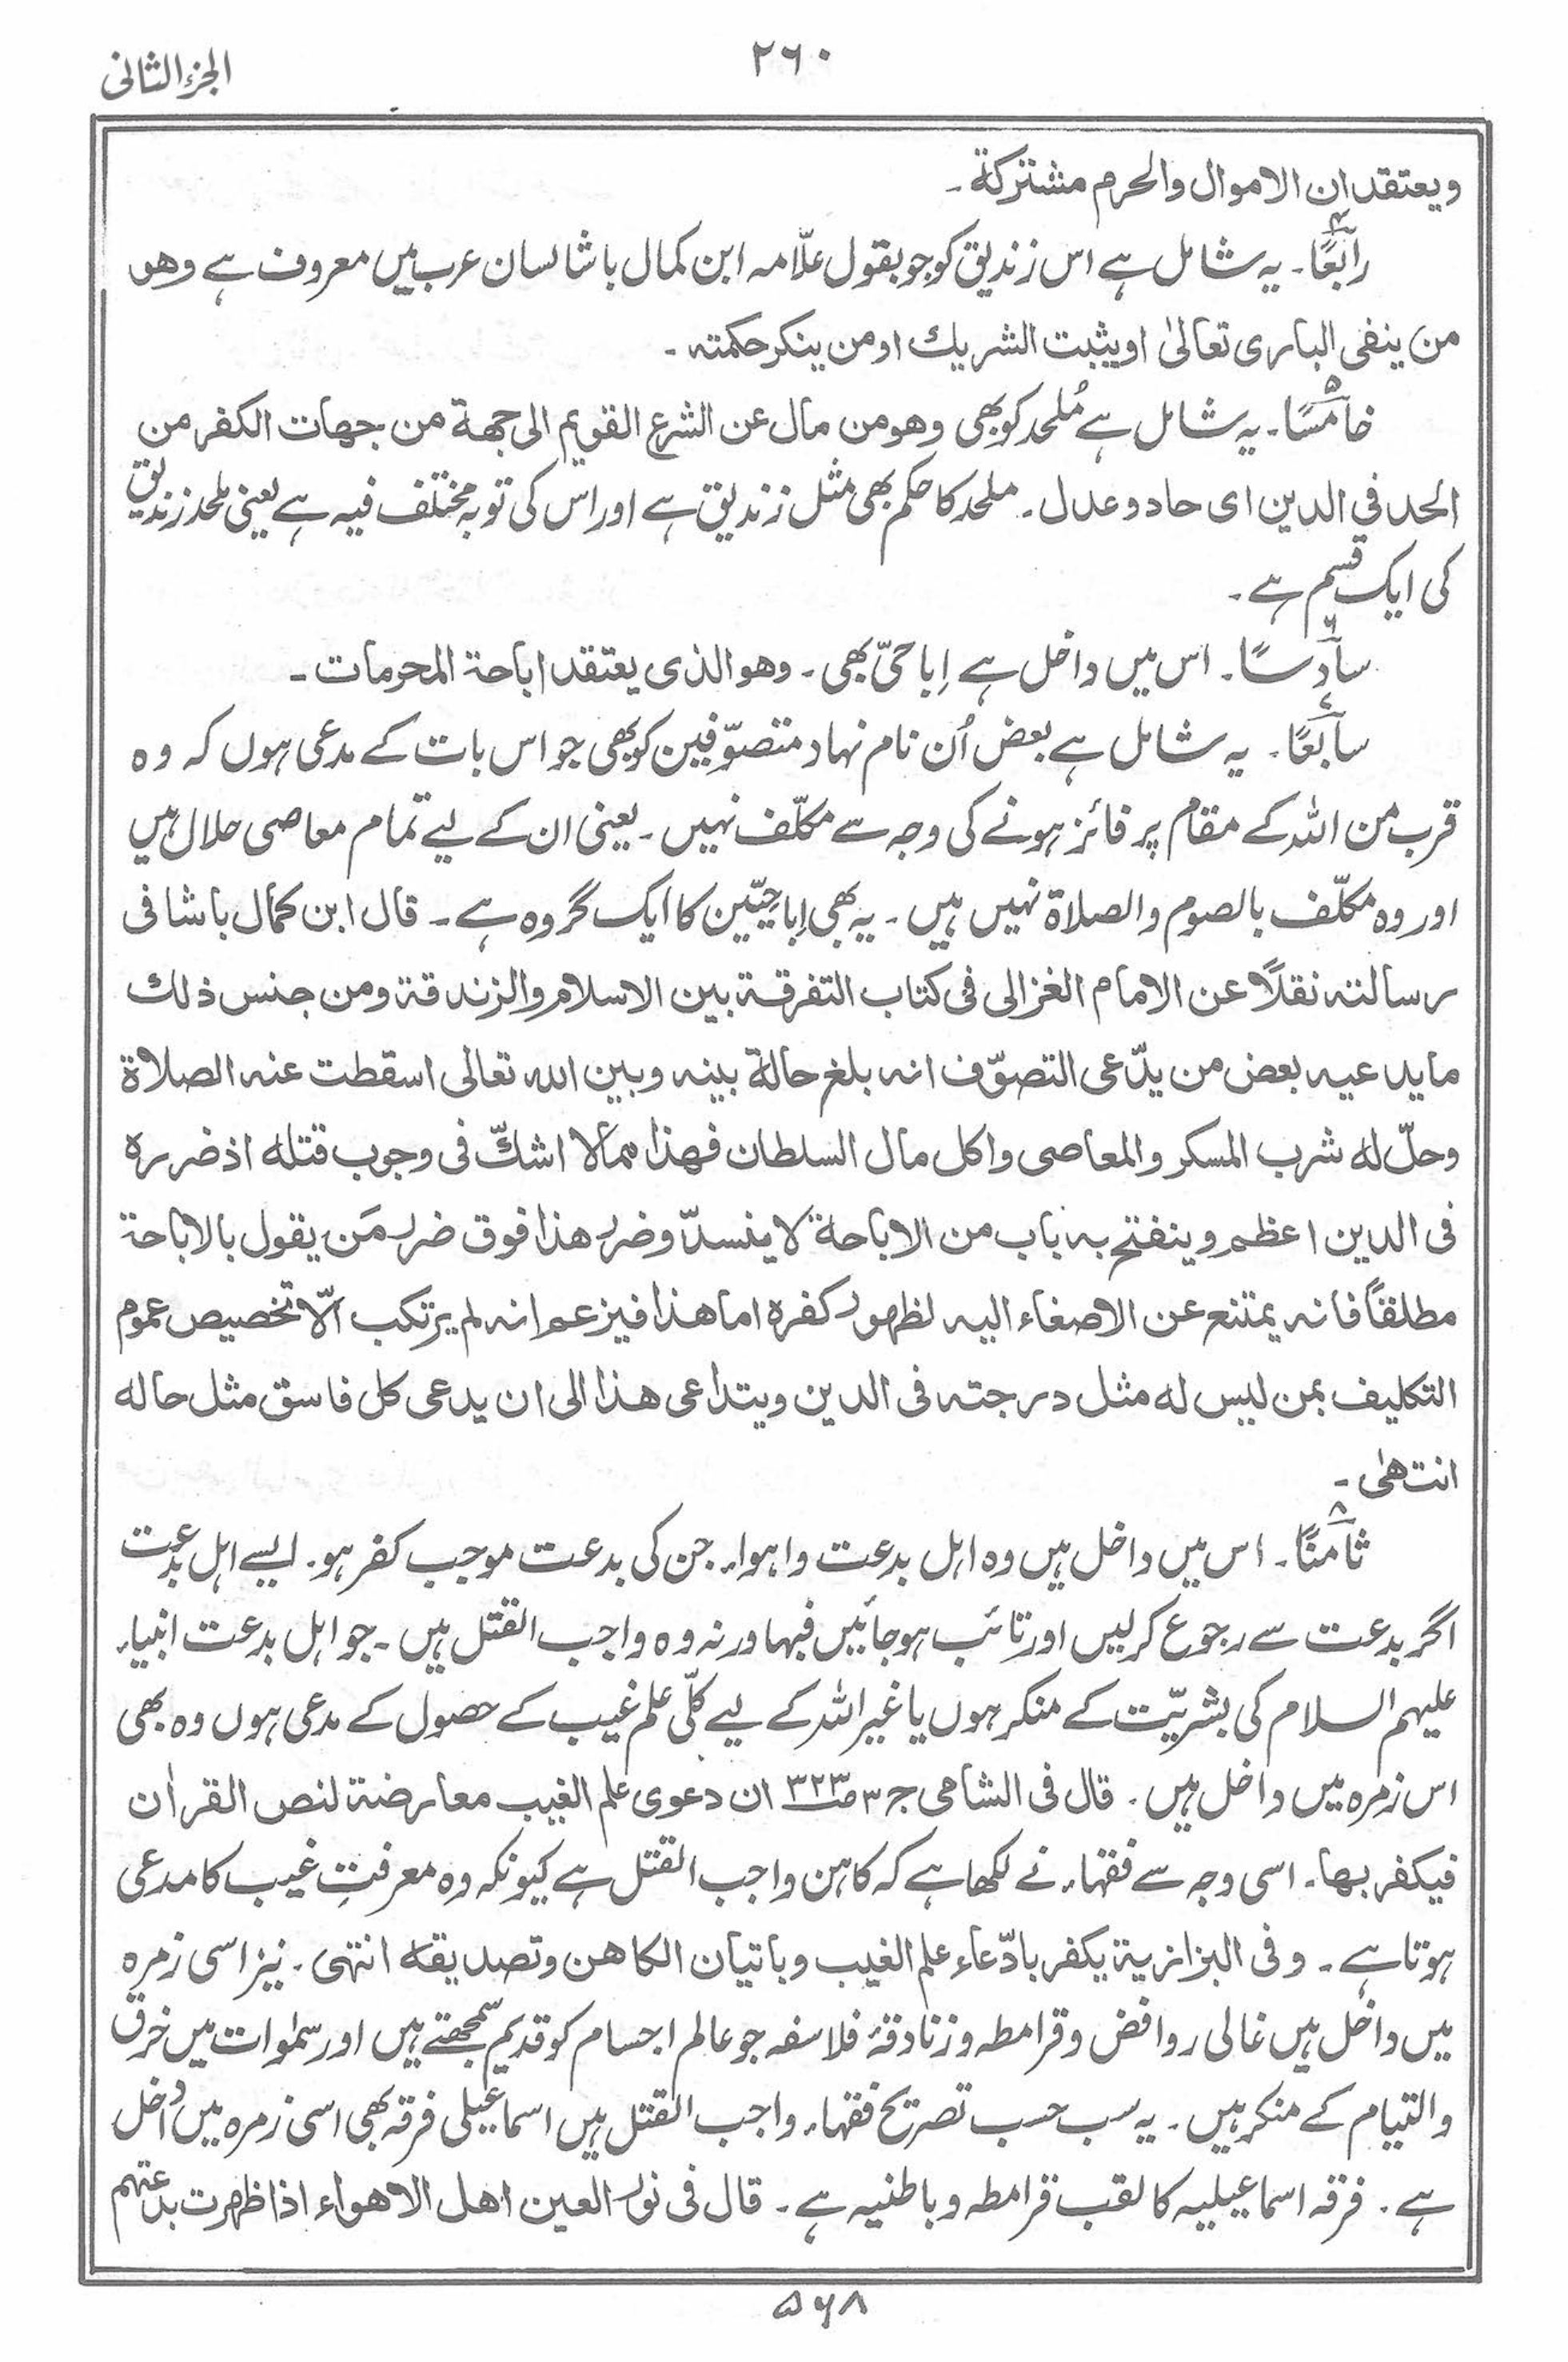 الجزء الثانی
۲۶۰
ویعتقد ان الاموال والحرم مشترکۃ۔
رابعًا۔ یہ شامل ہے اس زندیق کو جو بقول علّامہ ابن کمال باشا لسان عرب میں معروف ہے وھو
من ینفی الباری تعالیٰ او یثبت الشریك او من ینکر حکمتہ۔
خامسًا۔ یہ شامل ہے مُلحد کو بھی وھو من مال عن الشرع القویم الی جھۃ من جھات الکفر من
الحد فی الدین ای حاد وعدل۔ ملحد کا حکم بھی مثل زندیق ہے اور اس کی توبہ مختلف فیہ ہے یعنی ملحد زندیق
کی ایک قسم ہے۔
سادسًا۔ اس میں داخل ہے اِباحیّ بھی۔ وھو الذی یعتقد اباحۃ المحرمات۔
سابعًا۔ یہ شامل ہے بعض اُن نام نہاد متصوّفین کو بھی جو اس بات کے مدعی ہوں کہ وہ
قرب من اللہ کے مقام پر فائز ہونے کی وجہ سے مکلّف نہیں۔ یعنی ان کے لیے تمام معاصی حلال ہیں
اور وہ مکلّف بالصوم والصلاۃ نہیں ہیں۔ یہ بھی اِباحیّین کا ایک گروہ ہے۔ قال ابن کمال باشا فی
رسالتہ نقلًا عن الامام الغزالی فی کتاب التفرقۃ بین الاسلام والزندقۃ ومن جنس ذلك
ما یدعیہ بعض من یدّعی التصوّف انہ بلغ حالۃ بینہ وبین اللہ تعالی اسقطت عنہ الصلاۃ
وحلّ لہ شرب المسکر والمعاصی واکل مال السلطان فھذا مما لا اشكّ فی وجوب قتلہ اذ ضررہ
فی الدین اعظم وینفتح بہ باب من الاباحۃ لا ینسدّ وضرر ھذا فوق ضرر مَن یقول بالاباحۃ
مطلقًا فانہ یمتنع عن الاصغاء الیہ لظھور کفرہ اما ھذا فیزعم انہ لم یرتکب الّا تخصیص عموم
التکلیف بمن لیس لہ مثل درجتہ فی الدین ویتداعی ھذا الی ان یدعی کل فاسق مثل حالہ
انتھیٰ۔
ثامنًا۔ اس میں داخل ہیں وہ اہل بدعت واہواء جن کی بدعت موجب کفر ہو۔ ایسے اہل بدعت
اگر بدعت سے رجوع کرلیں اور تائب ہوجائیں فبہا ورنہ وہ واجب القتل ہیں۔ جو اہل بدعت انبیاء
علیہم السلام کی بشریّت کے منکر ہوں یا غیر اللہ کے لیے کلّی علم غیب کے حصول کے مدعی ہوں وہ بھی
اس زمرہ میں داخل ہیں۔ قال فی الشامی ج۳ ص۳۲۳ ان دعوی علم الغیب معارضۃ لنص القراٰن
فیکفر بھا۔ اسی وجہ سے فقہاء نے لکھا ہے کہ کاہن واجب القتل ہے کیونکہ وہ معرفتِ غیب کا مدعی
ہوتا ہے۔ وفی البزازیۃ یکفر بادّعاء علم الغیب وباتیان الکاھن وتصدیقہ انتہی۔ نیز اسی زمرہ
میں داخل ہیں غالی روافض وقرامطہ وزنادقۂ فلاسفہ جو عالم اجسام کو قدیم سمجھتے ہیں اور سمٰوات میں خرق
والتیام کے منکر ہیں۔ یہ سب حسب تصریح فقہاء واجب القتل ہیں اسماعیلی فرقہ بھی اسی زمرہ میں داخل
ہے۔ فرقہ اسماعیلیہ کا لقب قرامطہ وباطنیہ ہے۔ قال فی نور العین اھل الاھواء اذا ظھرت بدعتھم
۵۶۸